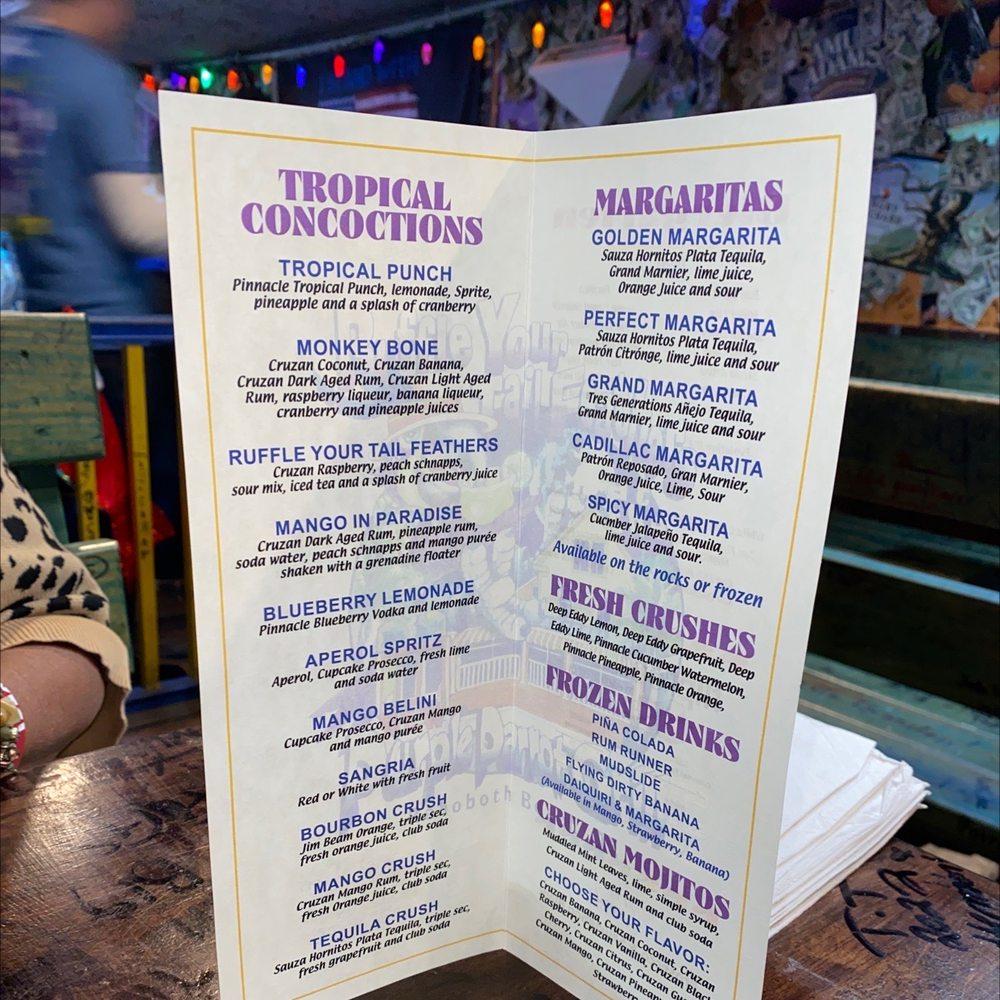 TROPICAL
CONCOCTIONS
TROPICAL PUNCH
Pinnacle Tropical Punch, lemonade, Sprite,
pineapple and a splash of cranberry
MONKEY BONE
Cruzan Coconut, Cruzan Banana,
Cruzan Dark Aged Rum, Cruzan Light Aged
Rum, raspberry liqueur, banana liqueur,
cranberry and pineapple juices
RUFFLE YOUR TAIL FEATHERS
Cruzan Raspberry, peach schnapps,
sour mix, iced tea and a splash of cranberry juice
MANGO IN PARADISE
Cruzan Dark Aged Rum, pineapple rum,
soda water, peach schnapps and mango purée
shaken with a grenadine floater
BLUEBERRY LEMONADE
Pinnacle Blueberry Vodka and lemonade
APEROL SPRITZ
Aperol, Cupcake Prosecco, fresh lime
and soda water
MANGO BELINI
Cupcake Prosecco, Cruzan Mango
and mango purée
SANGRIA
Red or White with fresh fruit
BOURBON CRUSH
Jim Beam Orange, triple sec,
fresh orange juice, club soda
MANGO CRUSH
Cruzan Mango Rum, triple sec,
fresh Orange juice, club soda
TEQUILA CRUSH
Sauza Hornitos Plata Tequila, triple sec,
fresh grapefruit and club soda
MARGARITAS
GOLDEN MARGARITA
Sauza Hornitos Plata Tequila,
Grand Marnier, lime juice,
Orange Juice and sour
PERFECT MARGARITA
Sauza Hornitos Plata Tequila,
Patrón Citrónge, lime juice and sour
GRAND MARGARITA
Tres Generations Añejo Tequila,
Grand Marnier, lime juice and sour
CADILLAC MARGARITA
Patrón Reposado, Gran Marnier,
Orange Juice, Lime, Sour
SPICY MARGARITA
Cucmber Jalapeño Tequila,
lime juice and sour.
Available on the rocks or frozen
FRESH CRUSHES
Deep Eddy Lemon, Deep Eddy Grapefruit, Deep
Eddy Lime, Pinnacle Cucumber Watermelon,
Pinnacle Pineapple, Pinnacle Orange,
FROZEN DRINKS
PIÑA COLADA
RUM RUNNER
MUDSLIDE
FLYING DIRTY BANANA
DAIQUIRI & MARGARITA
(Available in Mango, Strawberry, Banana)
CRUZAN MOJITOS
Mudded Mint Leaves, lime, simple syrup,
Cruzan Light Aged Rum and club soda
CHOOSE YOUR FLAVOR:
Cruzan Banana, Cruzan Coconut, Cruzan
Raspberry, Cruzan Vanilla, Cruzan Black
Cherry, Cruzan Citrus, Cruzan
Cruzan Mango, Cruzan